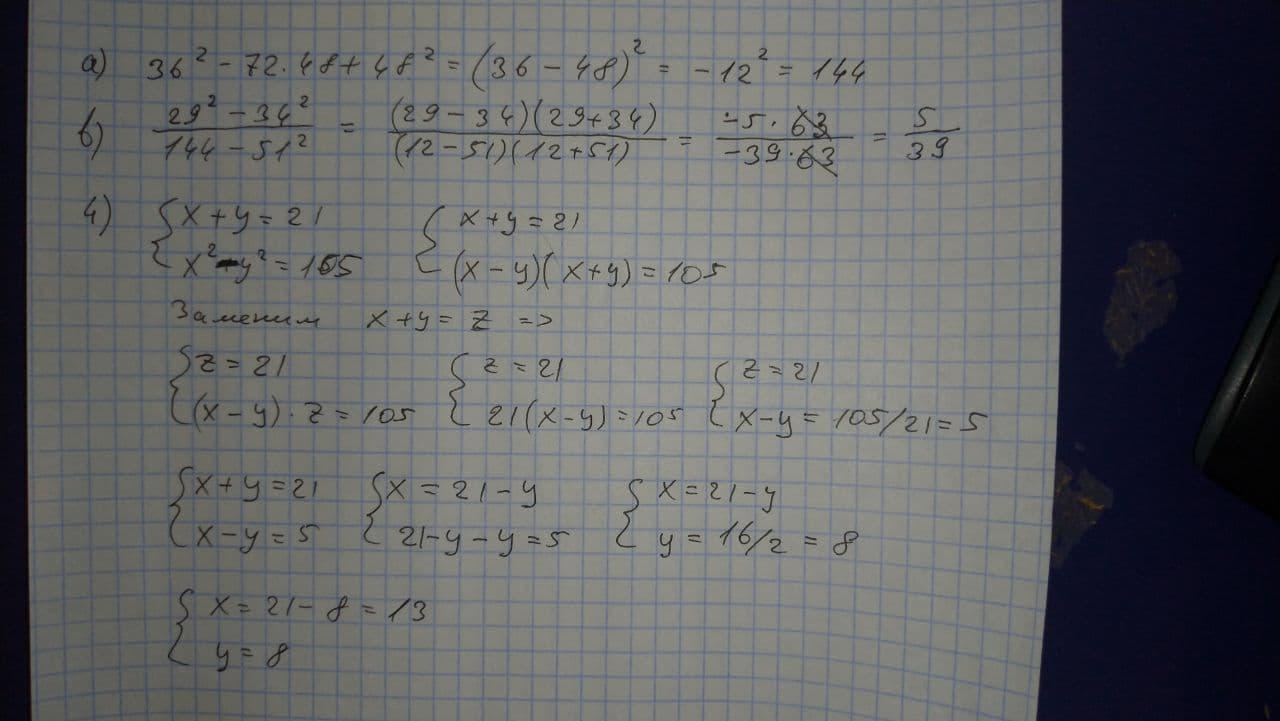 а) 36² - 72·48 + 48² = (36 - 48)² = -12² = 144
в) (29² - 34²)/(144 - 51²) = ((29 - 34)(29+34))/((12 - 51)(12+51)) = (-5·63)/(-39·63) = 5/39
4) { x + y = 21 { x + y = 21
x² - y² = 105 (x - y)(x + y) = 105
Заменим x + y = z =>
{ z = 21 { z = 21 { z = 21
(x - y)·z = 105 21(x - y) = 105 x - y = 105/21 = 5
{ x + y = 21 { x = 21 - y { x = 21 - y
x - y = 5 21 - y - y = 5 y = 16/2 = 8
{ x = 21 - 8 = 13
y = 8